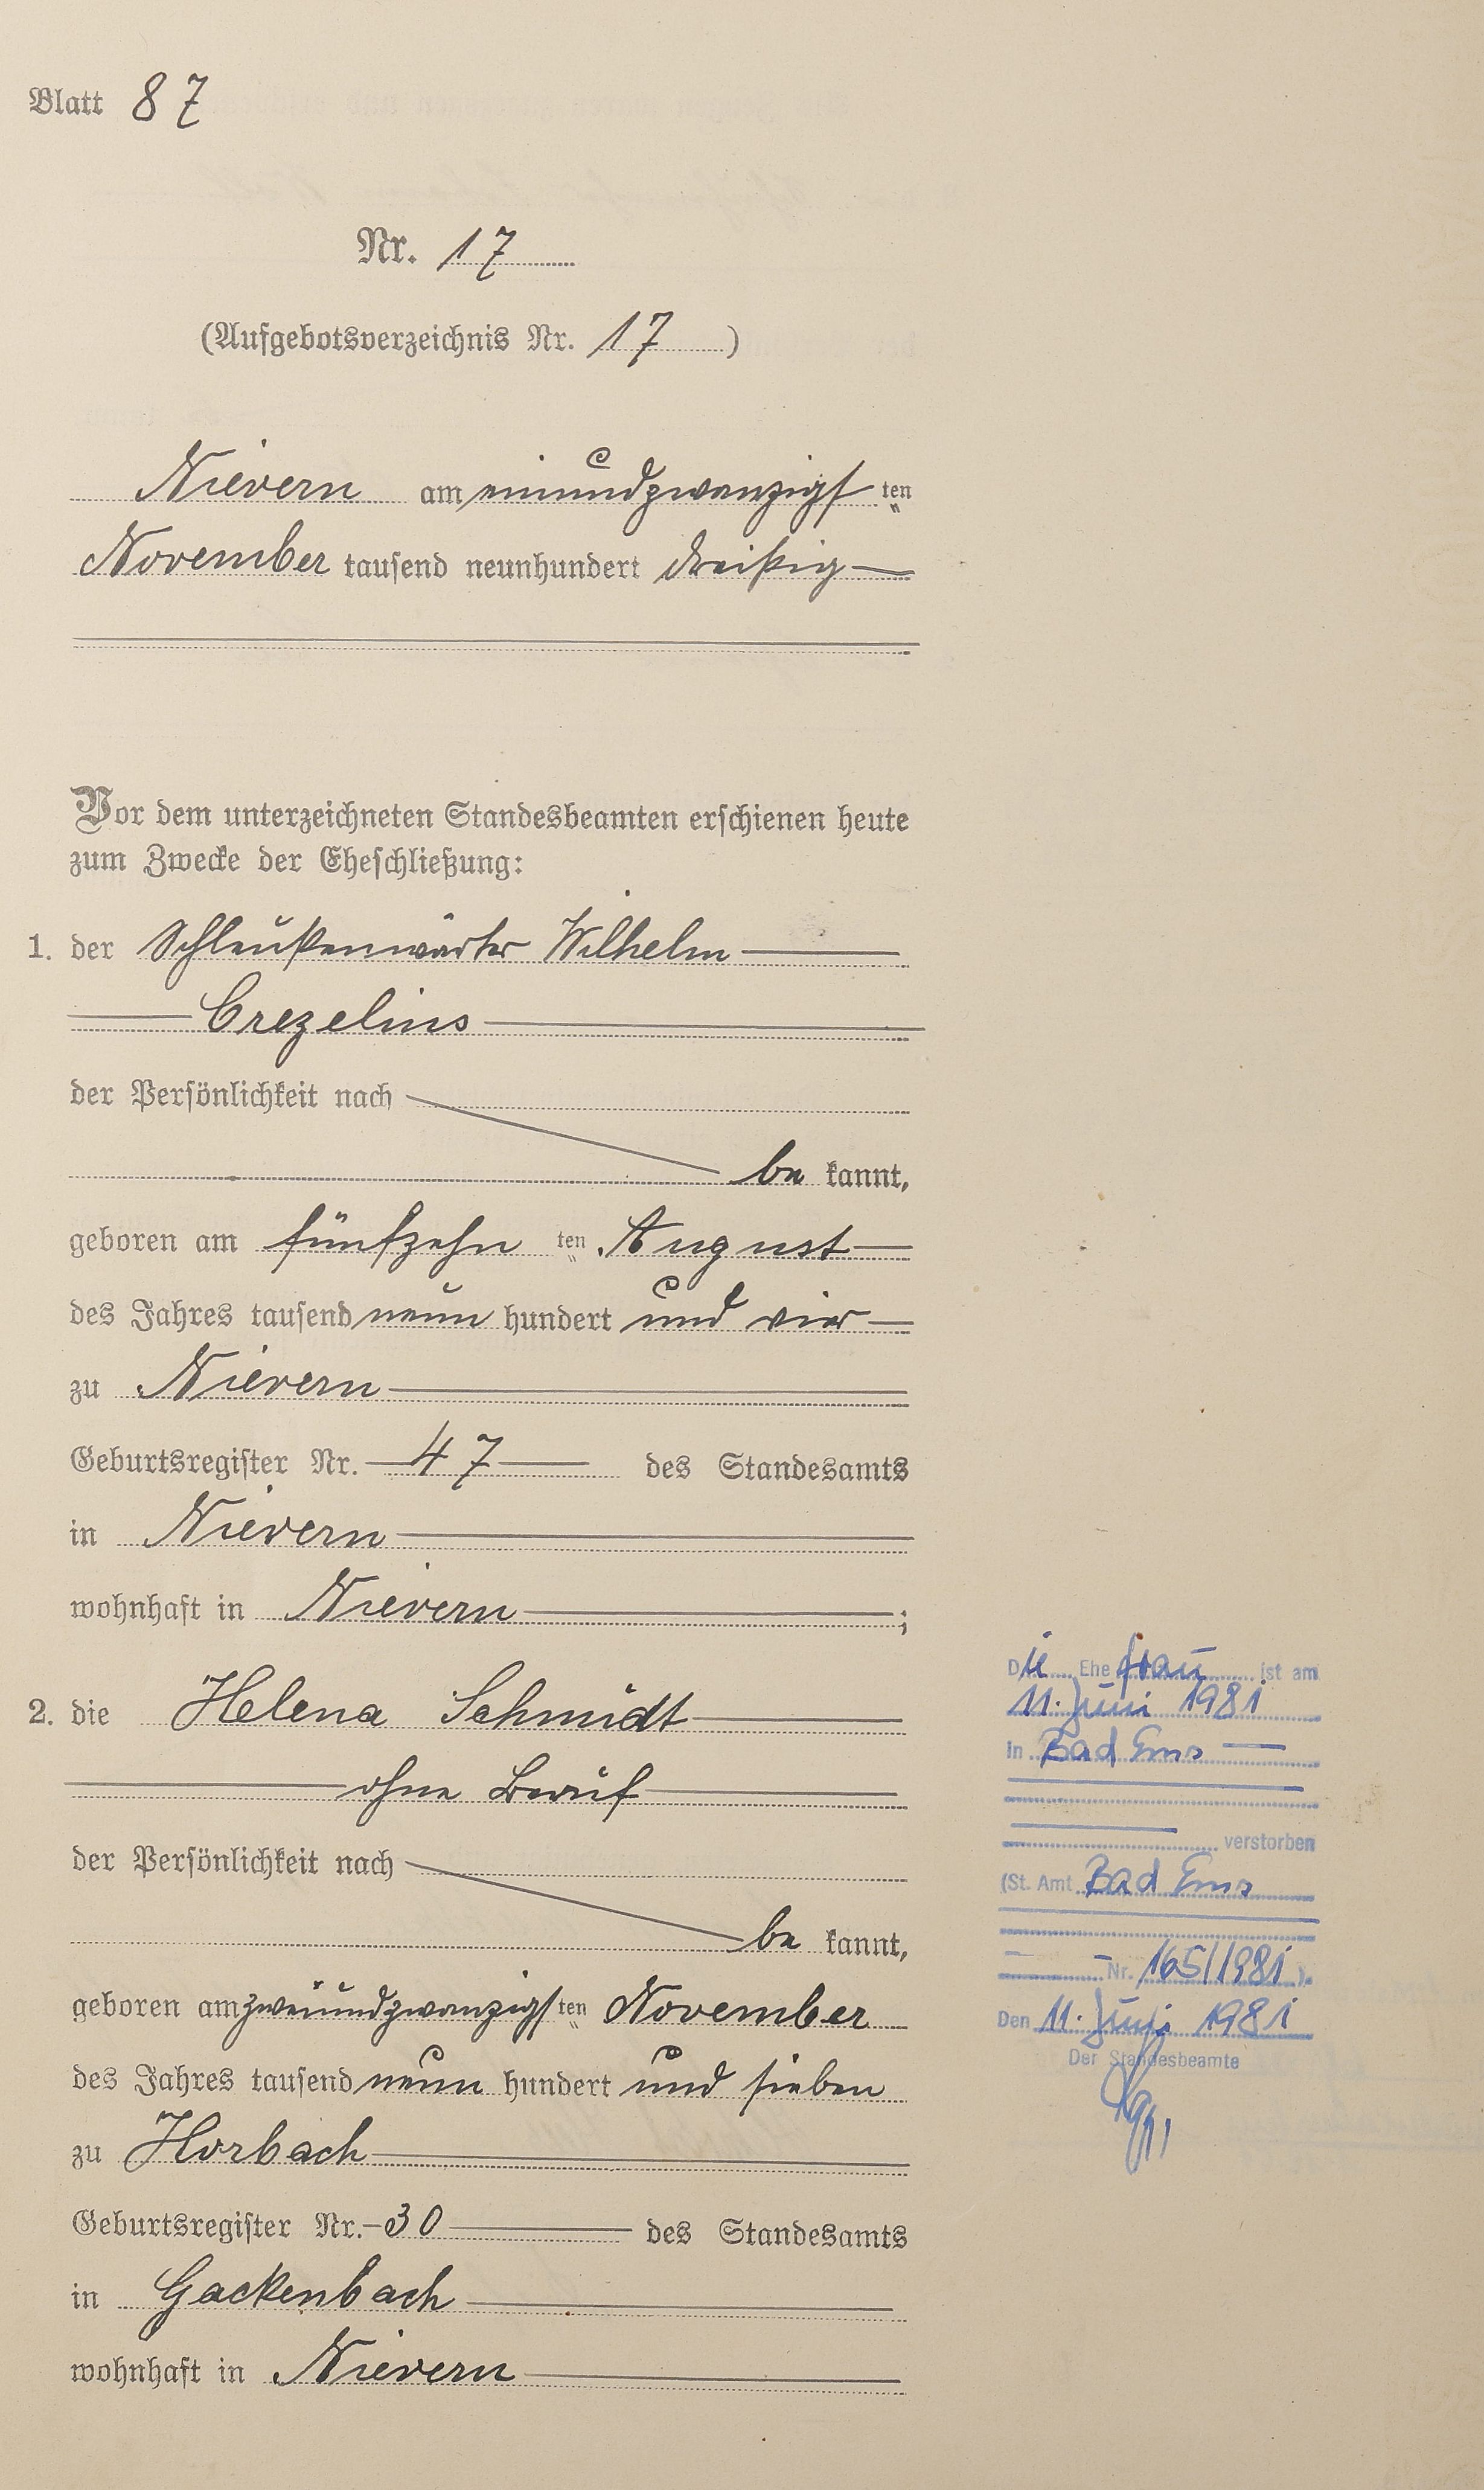 Blatt 87
Nr. 17
(Aufgebotsverzeichnis Nr. 17)
Nievern am einundzwanzigsten
November tausend neunhundert dreißig
Vor dem unterzeichneten Standesbeamten erschienen heute
zum Zwecke der Eheschließung:
1. der Schleußenwärter Wilhelm
Crezelius
der Persönlichkeit nach
be kannt,
geboren am fünfzehn ten August
des Jahres tausend neun hundert und vier
zu Nievern
Geburtsregister Nr. 47 des Standesamts
in Nievern
wohnhaft in Nievern ;
2. die Helena Schmidt
ohne Beruf
der Persönlichkeit nach
be kannt,
geboren am zweiundzwanzigsten November
des Jahres tausend neun hundert und sieben
zu Horbach
Geburtsregister Nr. 30 des Standesamts
in Gackenbach
wohnhaft in Nievern
Die Ehefrau ist am
11. Juni 1981
in Bad Ems
verstorben
(St. Amt Bad Ems
Nr. 165/1981).
Den 11. Juni 1981
Der Standesbeamte